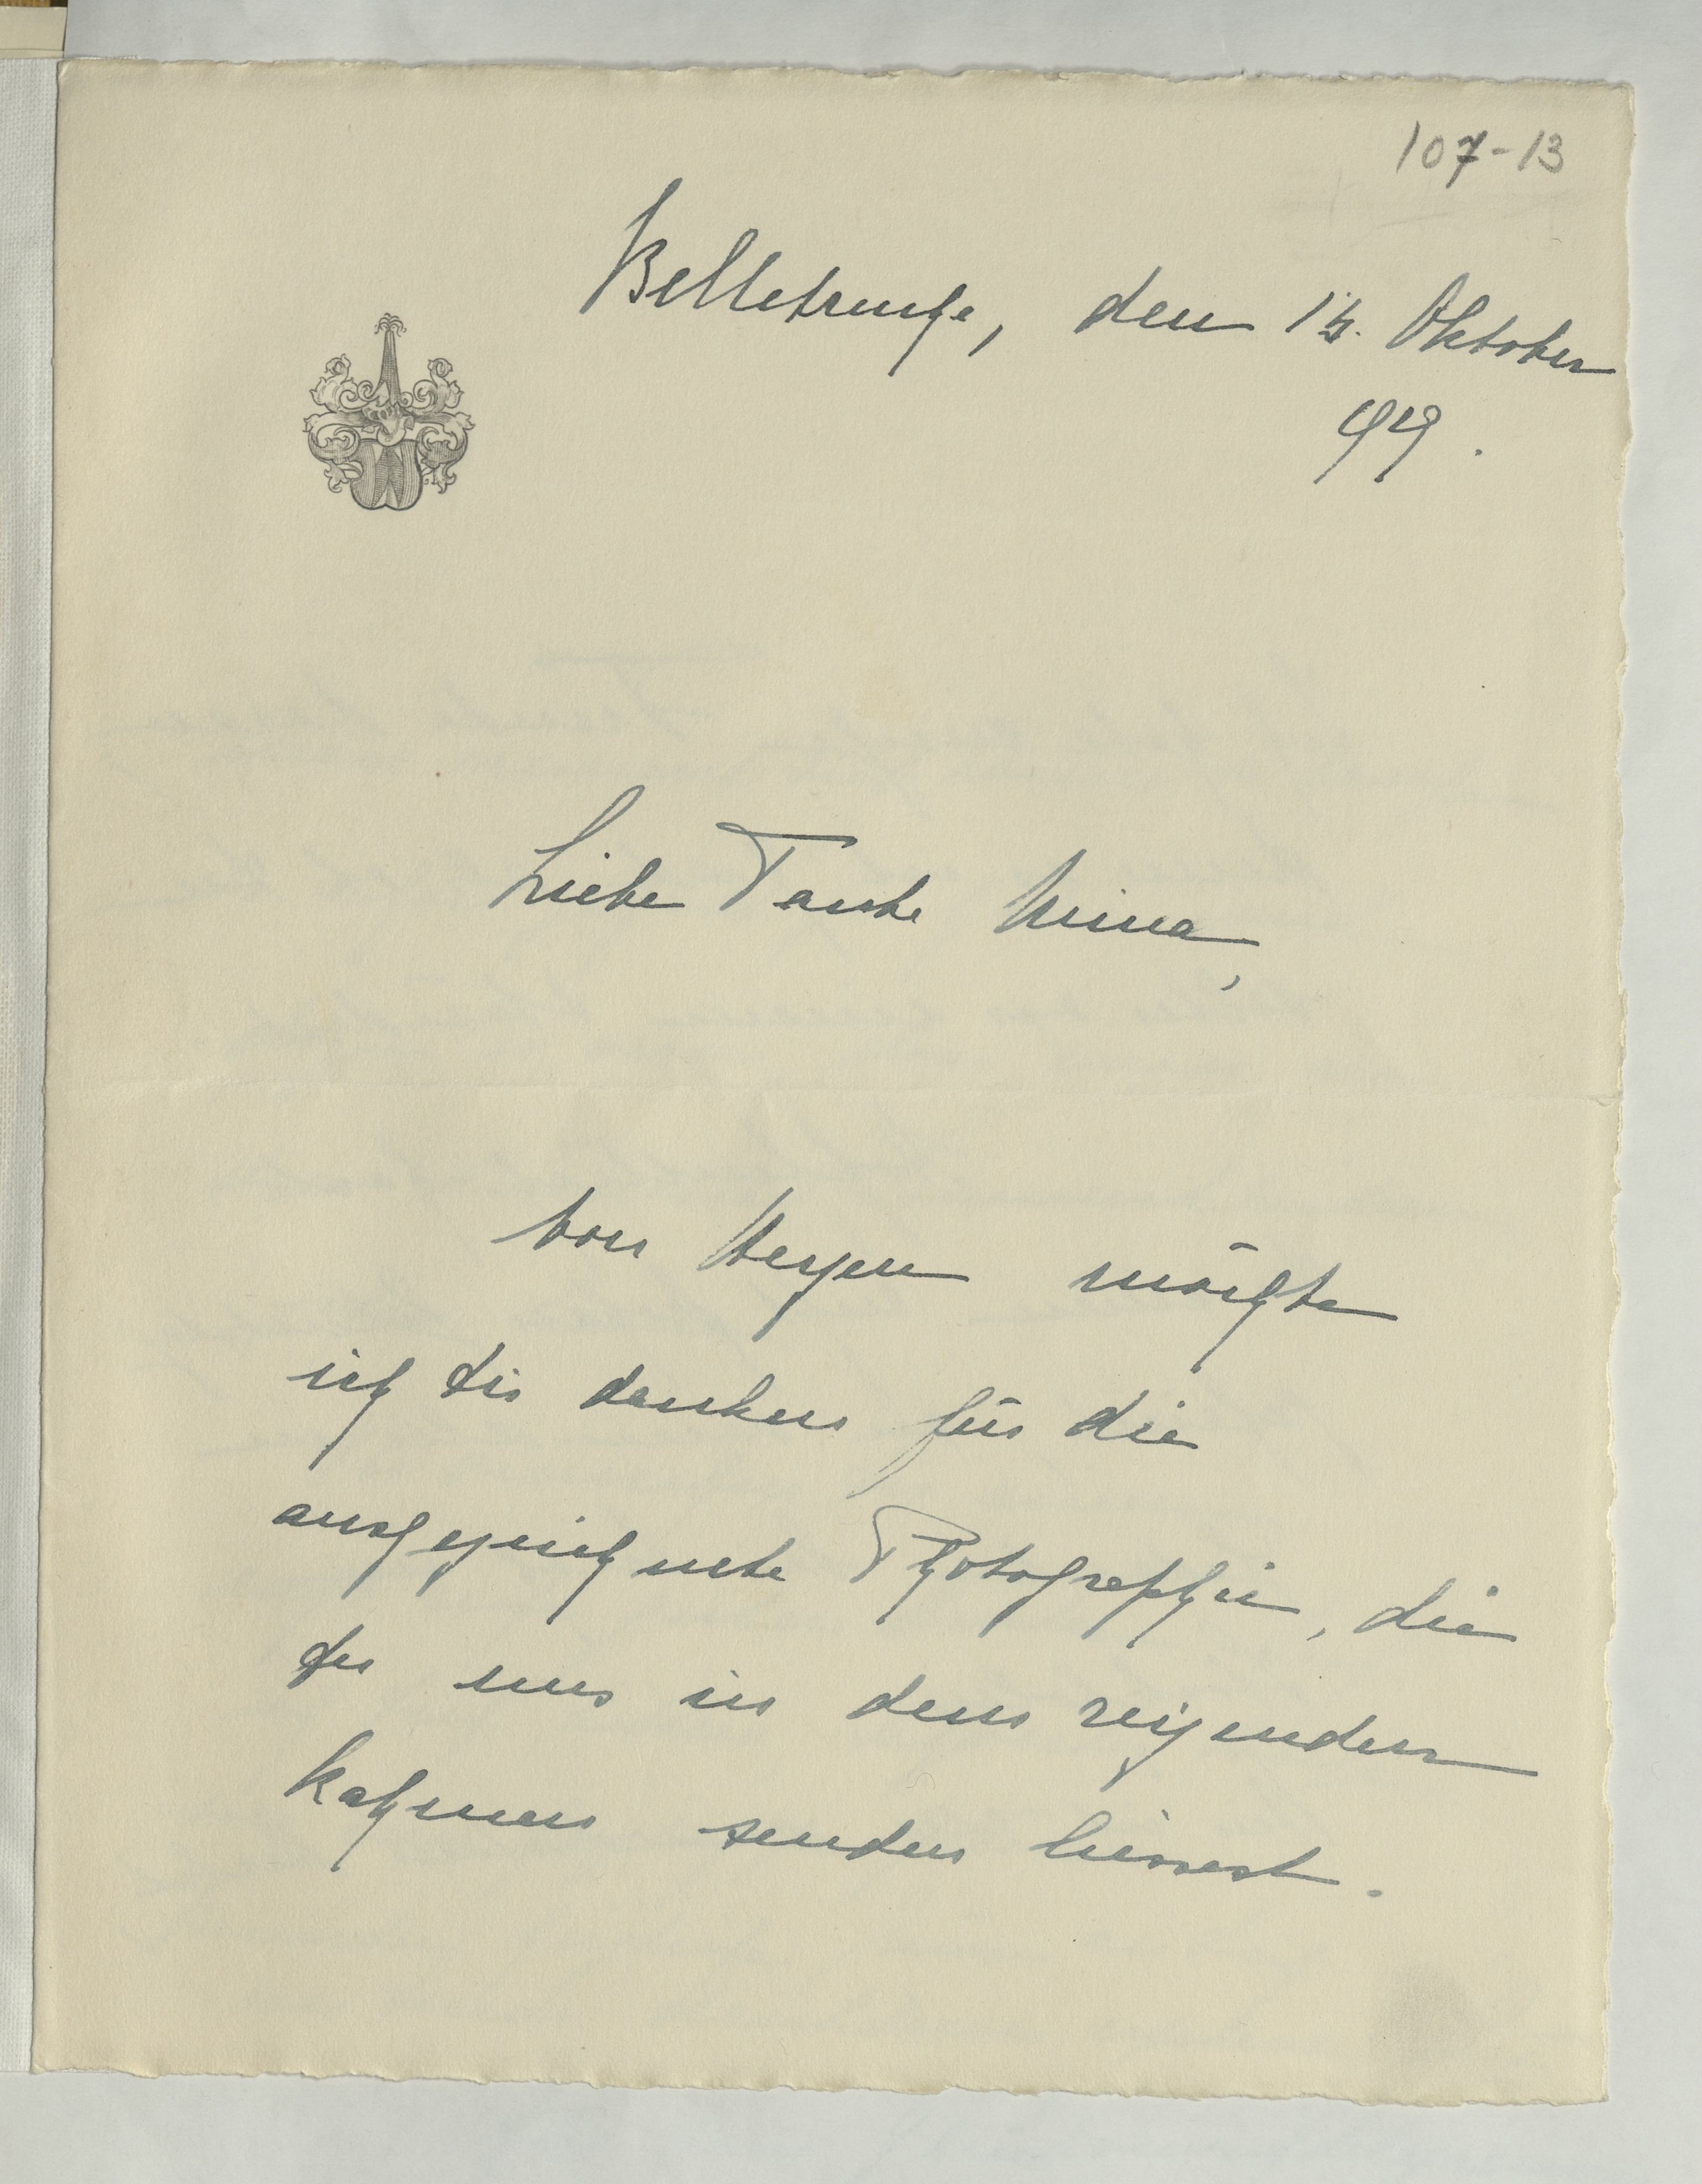 107-13
Belletruche, den 14. Oktober
99.
Liebe Tante Mina,
Von Herzen möchte
ich dir danken für die
ausgezeichnete Photographie, die
du uns in dem reizenden
Rahmen senden liessest.